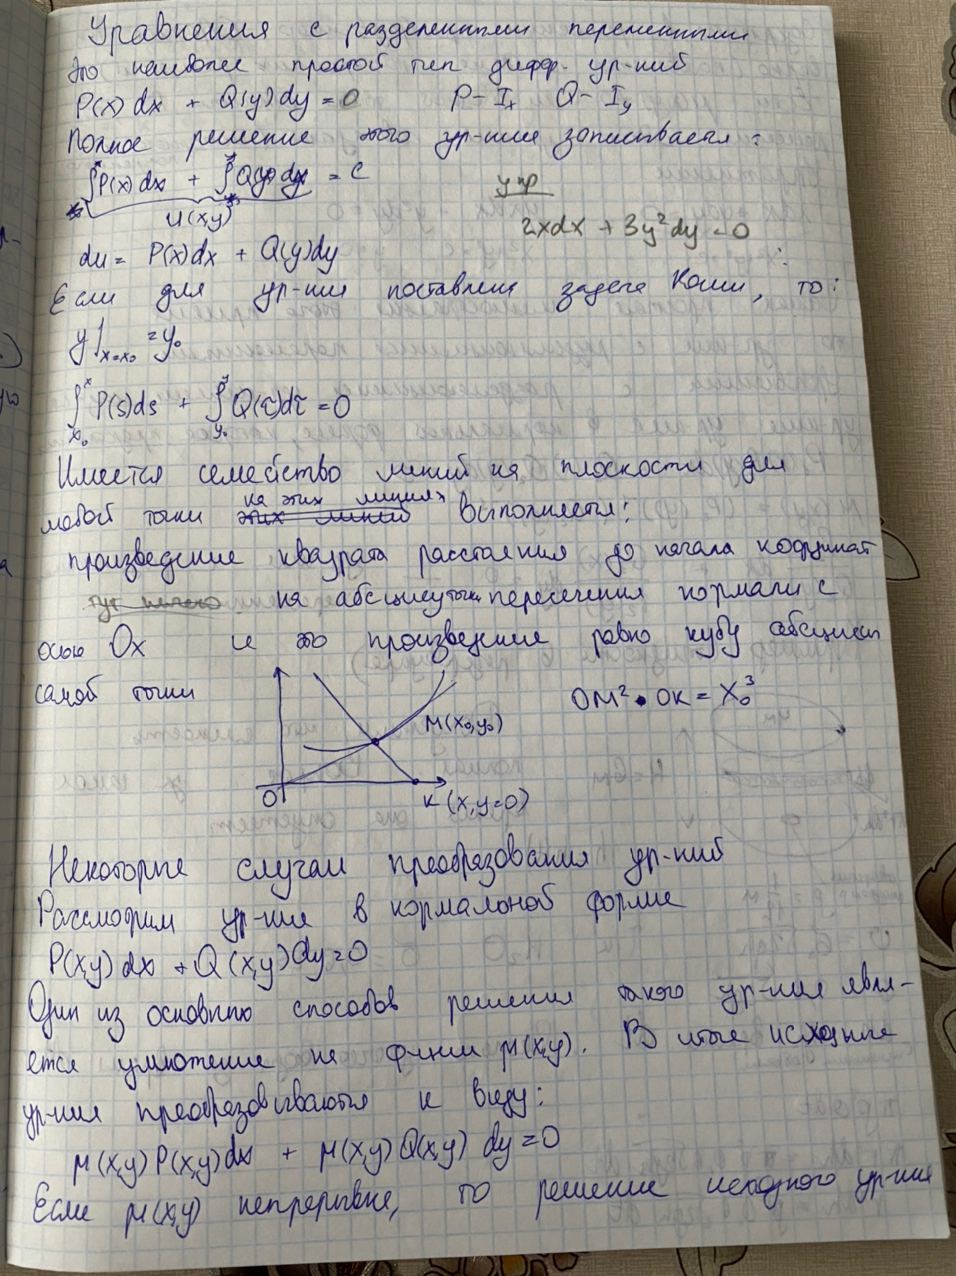 Уравнения с разделенными переменными
Это наиболее простой тип дифф. ур-ний
P(x)dx + Q(y)dy = 0 P - Iₓ Q - Iᵧ
Полное решение этого ур-ния записывается:
∫ˣP(x)dx + ∫ʸQ(y)dy = C
u(x,y)
упр
2xdx + 3y²dy = 0
du = P(x)dx + Q(y)dy
Если для ур-ния поставлена задача Коши, то:
y|ₓ₌ₓ₀ = y₀
∫ₓ₀ˣ P(s)ds + ∫ᵧ₀ʸ Q(τ)dτ = 0
Имеется семейство линий на плоскости для
любой точки на этих линиях выполняется:
произведение квадрата расстояния до начала координат
на абсциссу точки пересечения нормали с
осью Ox и это произведение равно кубу абсциссы
самой точки
OM² • OK = X₀³
M(x₀,y₀)
O
K (x,y=0)
Некоторые случаи преобразования ур-ний
Рассмотрим ур-ние в нормальной форме
P(x,y)dx + Q(x,y)dy=0
Один из основных способов решения такого ур-ния явля-
ется умножение на ф-нии μ(x,y). В итоге исходные
ур-ния преобразовываются к виду:
μ(x,y)P(x,y)dx + μ(x,y)Q(x,y)dy=0
Если μ(x,y) непрерывна, то решение исходного ур-ния